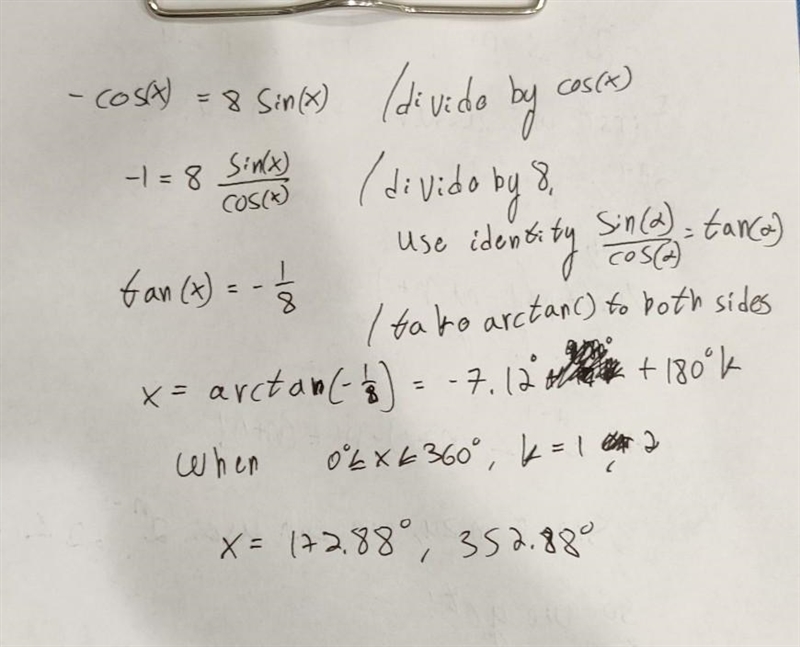 - cos(x) = 8 sin(x) /divide by cos(x)
-1 = 8 sin(x)/cos(x) /divide by 8,
use identity sin(α)/cos(α) = tan(α)
tan(x) = - 1/8
/take arctan() to both sides
x = arctan(-1/8) = -7.12° + 180° k
When 0° ≤ x ≤ 360°, k = 1, 2
x = 172.88°, 352.88°